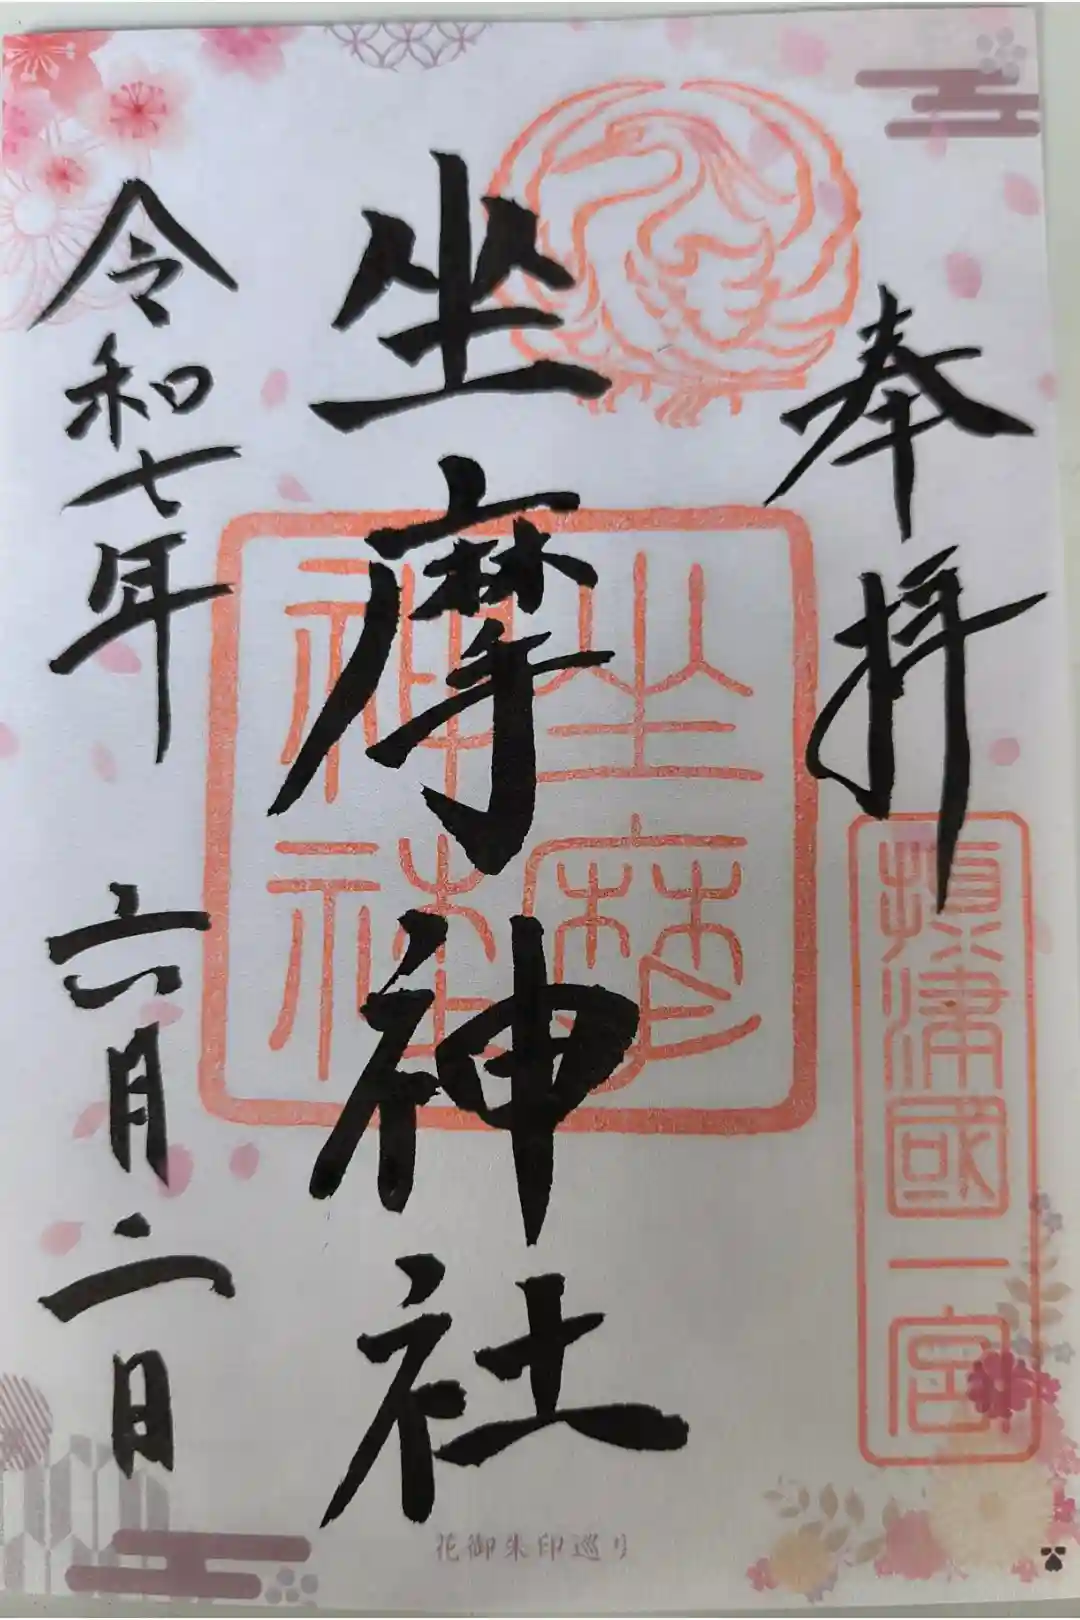 奉拝
摂津國一宮
坐摩神社
坐摩
神社
令和七年 六月二日
花御朱印巡り